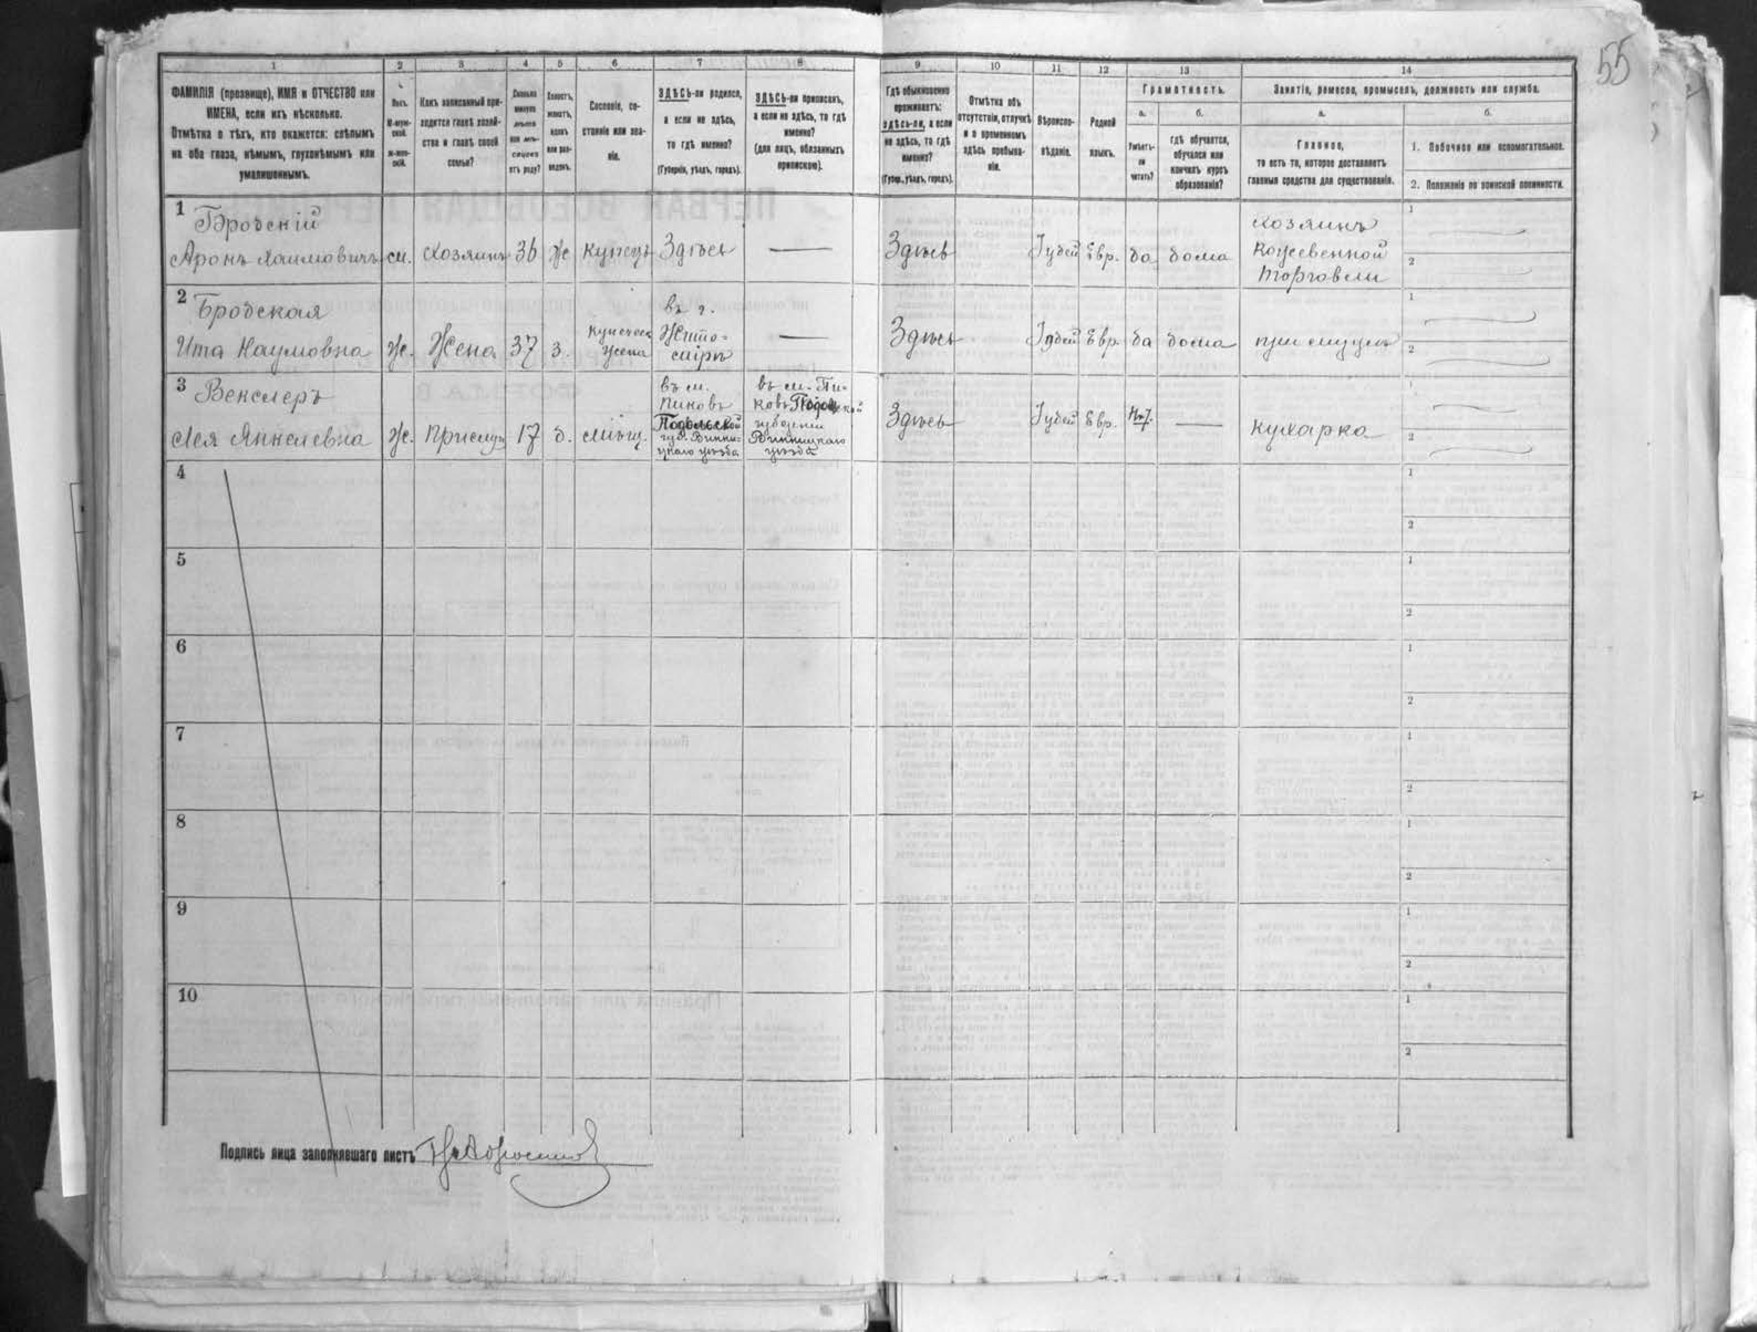 55
1 2 3 4 5 6 7 8 9 10 11 12 13 14
ФАМИЛІЯ (прозвище), ИМЯ и ОТЧЕСТВО или
ИМЕНА, если ихъ нѣсколько.
Отмѣтка о тѣхъ, кто окажется: слѣпымъ
на оба глаза, нѣмымъ, глухонѣмымъ или
умалишеннымъ.
Полъ.
М-муж-
ской.
Ж-жен-
скій.
Какъ записанный при-
ходится главѣ хозяй-
ства и главѣ своей
семьи?
Сколько
минуло
лѣтъ
или мѣ-
сяцевъ
отъ роду?
Холостъ,
женатъ,
вдовъ
или раз-
веденъ.
Сословіе, со-
стояніе или зва-
ніе.
ЗДѢСЬ-ли родился,
а если не здѣсь,
то гдѣ именно?
(Губернія, уѣздъ, городъ).
ЗДѢСЬ-ли приписанъ,
а если не здѣсь, то гдѣ
именно?
(для лицъ, обязанныхъ
припискою).
Гдѣ обыкновенно
проживаетъ:
здѣсь-ли, а если
не здѣсь, то гдѣ
именно?
(Губер., уѣздъ, городъ).
Отмѣтка объ
отсутствіи, отлучкѣ
и о временномъ
здѣсь пребыва-
ніи.
Вѣроиспо-
вѣданіе.
Родной
языкъ.
Грамотность.
а.
Умѣетъ-
ли
читать?
б.
гдѣ обучается,
обучался или
кончилъ курсъ
образованія?
Занятіе, ремесло, промыселъ, должность или служба.
а.
Главное,
то есть то, которое доставляетъ
главныя средства для существованія.
б.
1. Побочное или вспомогательное.
2. Положеніе по воинской повинности.
1
Бродскій
Аронъ Хаимовичъ
м.
хозяинъ
36
Ж
купецъ
Здѣсь
—
Здѣсь
Іудей
Евр.
да
дома
хозяинъ
Кожевенной
торговли
1
2
2
Бродская
Ита Наумовна
Ж.
Жена
37
З.
купеческ
жена
въ г.
Жито-
мірѣ
—
Здѣсь
Іудей
Евр.
да
дома
при мужѣ
1
2
3
Векслеръ
Лея Янкелевна
Ж.
Прислуг
17
д.
мѣщ.
въ м.
Пиковъ
Подольской
губ. Винни-
цкаго уѣзда
въ м. Пи-
ковъ Подольской
губерніи
Винницкаго
уѣзда
Здѣсь
Іудей
Евр.
Нѣт
—
кухарка
1
2
4
1
2
5
1
2
6
1
2
7
1
2
8
1
2
9
1
2
10
1
2
Подпись лица заполнявшаго листъ